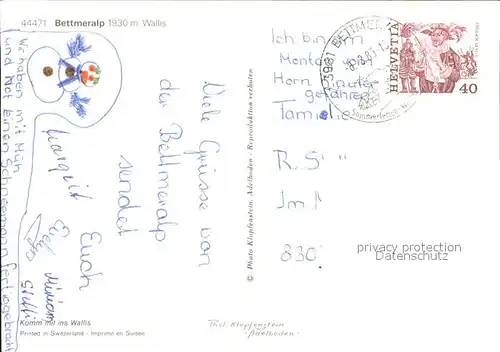 44471 Bettmeralp 1930 m Wallis
Wir haben mit Müh
und Not einen Schneemann fertiggebracht
Viele Grüsse von
der Bettmeralp
sendet
Euch
Margrit
Miriam
Steffi
Komm mit ins Wallis
Printed in Switzerland - Imprimé en Suisse
© Photo Klopfenstein, Adelboden - Reproduktion verboten
Ich bin im
Montag
Horn hinter
gefahren
Familie
R. S
Im
830
3981 BETTMERALP
HELVETIA
40
privacy protection
Datenschutz
Phot. Klopfenstein
Adelboden